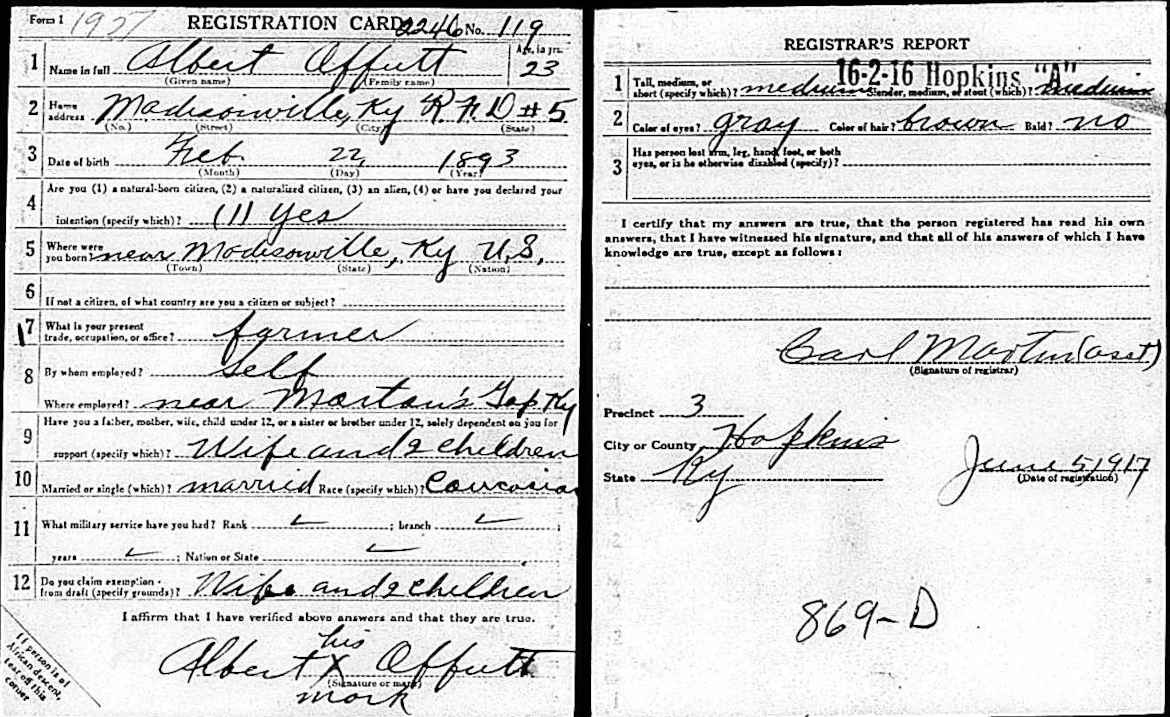 Form 1 1927 REGISTRATION CARD 2246 No. 119
1 Name in full Albert Offutt Age, in yrs. 23
(Given name) (Family name)
2 Home address Madisonville, Ky R.F.D #5
(No.) (Street) (City) (State)
3 Date of birth Feb. 22, 1893
(Month) (Day) (Year)
4 Are you (1) a natural-born citizen, (2) a naturalized citizen, (3) an alien, (4) or have you declared your
intention (specify which)? (1) Yes
5 Where were you born? near Madisonville, Ky U.S,
(Town) (State) (Nation)
6 If not a citizen, of what country are you a citizen or subject?
7 What is your present trade, occupation, or office? farmer
8 By whom employed? Self
Where employed? near Morton's Gap Ky
9 Have you a father, mother, wife, child under 12, or a sister or brother under 12, solely dependent on you for
support (specify which)? Wife and 2 children
10 Married or single (which)? married Race (specify which)? Caucasian
11 What military service have you had? Rank ; branch ;
years ; Nation or State
12 Do you claim exemption from draft (specify grounds)? Wife and 2 children
I affirm that I have verified above answers and that they are true.
his
Albert X Offutt
(Signature or mark)
mark
If person is of
African descent,
tear off this
corner
REGISTRAR'S REPORT
16-2-16 Hopkins "A"
1 Tall, medium, or short (specify which)? medium Slender, medium, or stout (which)? medium
2 Color of eyes? gray Color of hair? brown Bald? no
3 Has person lost arm, leg, hand, foot, or both
eyes, or is he otherwise disabled (specify)?
I certify that my answers are true, that the person registered has read his own
answers, that I have witnessed his signature, and that all of his answers of which I have
knowledge are true, except as follows:
Carl Martin (asst)
(Signature of registrar)
Precinct 3
City or County Hopkins
State Ky June 5, 1917
(Date of registration)
869-D